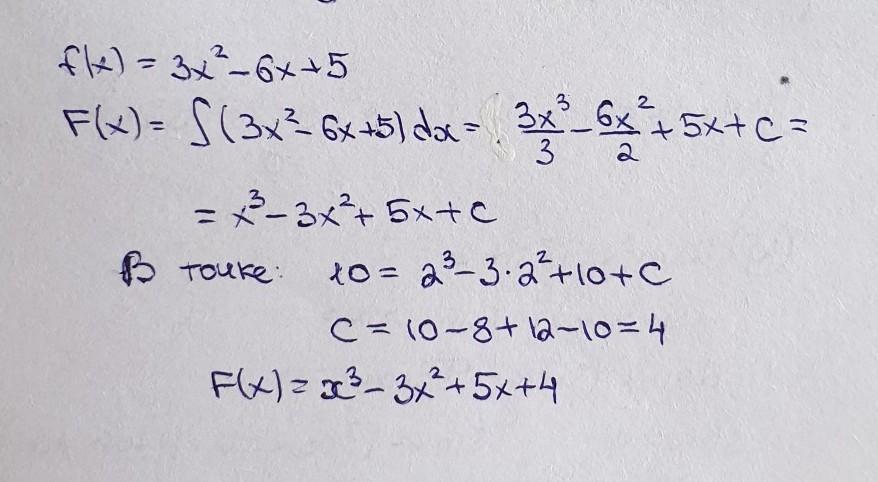 f(x) = 3x² - 6x + 5
F(x) = ∫(3x² - 6x + 5) dx = 3x³/3 - 6x²/2 + 5x + c =
= x³ - 3x² + 5x + c
В точке: 10 = 2³ - 3·2² + 10 + C
C = 10 - 8 + 12 - 10 = 4
F(x) = x³ - 3x² + 5x + 4